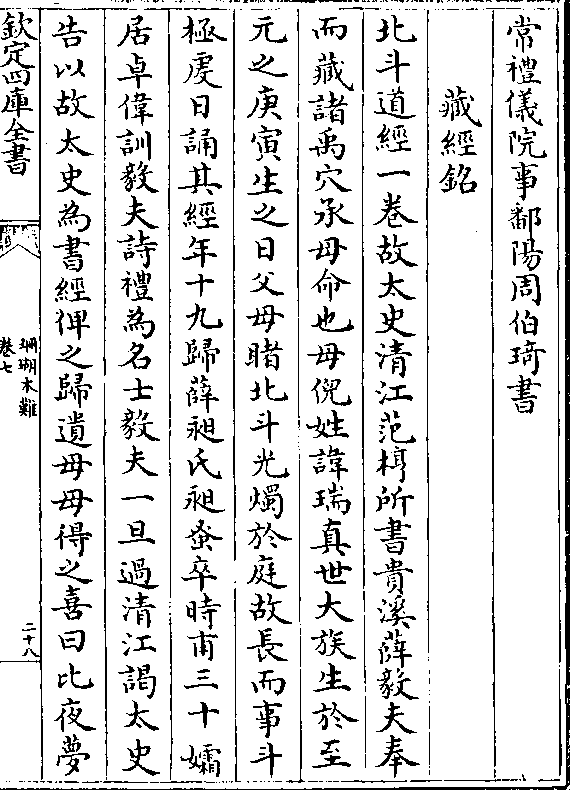 常禮儀院事鄱陽周伯琦書
藏經銘
北斗道經一卷故太史清江范梈所書貴溪薛毅夫奉
而藏諸禹穴承母命也母倪姓諱瑞真世大族生於至
元之庚寅生之日父母睹北斗光燭於庭故長而事斗
極虔日誦其經年十九歸薛昶氏昶蚤卒時甫三十孀
居卓偉訓毅夫詩禮為名士毅夫一旦過清江謁太史
告以故太史為書經俾之歸遺母母得之喜曰比夜夢
欽定四庫全書
珊瑚木難
卷七
二十八